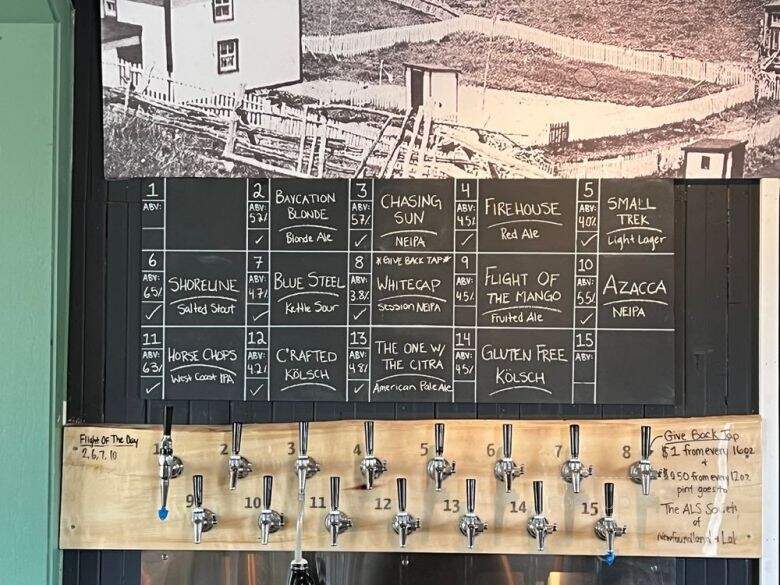 1
ABV:
2
ABV:
5.2%
✓
BAYCATION
BLONDE
Blonde Ale
3
ABV:
5.7%
✓
CHASING
SUN
NEIPA
4
ABV:
4.5%
✓
FIREHOUSE
Red Ale
5
ABV:
4.0%
✓
SMALL
TREK
Light Lager
6
ABV:
6.5%
✓
SHORELINE
Salted Stout
7
ABV:
4.7%
✓
BLUE STEEL
Kettle Sour
8
ABV:
3.8%
✓
*GIVE BACK TAP*
WHITECAP
Session NEIPA
9
ABV:
4.5%
FLIGHT OF
THE MANGO
Fruited Ale
10
ABV:
5.5%
✓
AZACCA
NEIPA
11
ABV:
6.3%
✓
HORSE CHOPS
West Coast IPA
12
ABV:
4.2%
✓
C'RAFTED
KÖLSCH
13
ABV:
4.8%
✓
THE ONE W/
THE CITRA
American Pale Ale
14
ABV:
4.5%
GLUTEN FREE
KÖLSCH
15
ABV:
Flight Of The Day
2, 6, 7, 10
1 2 3 4 5 6 7 8
9 10 11 12 13 14 15
Give Back Tap
$1 from every 16oz
+
$0.50 from every 12oz
pint goes to
The ALS Society
of
Newfoundland & Lab